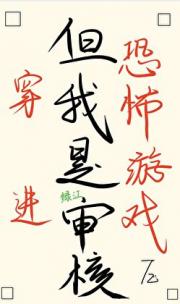 穿进
恐怖游戏
但我是审核
绿江